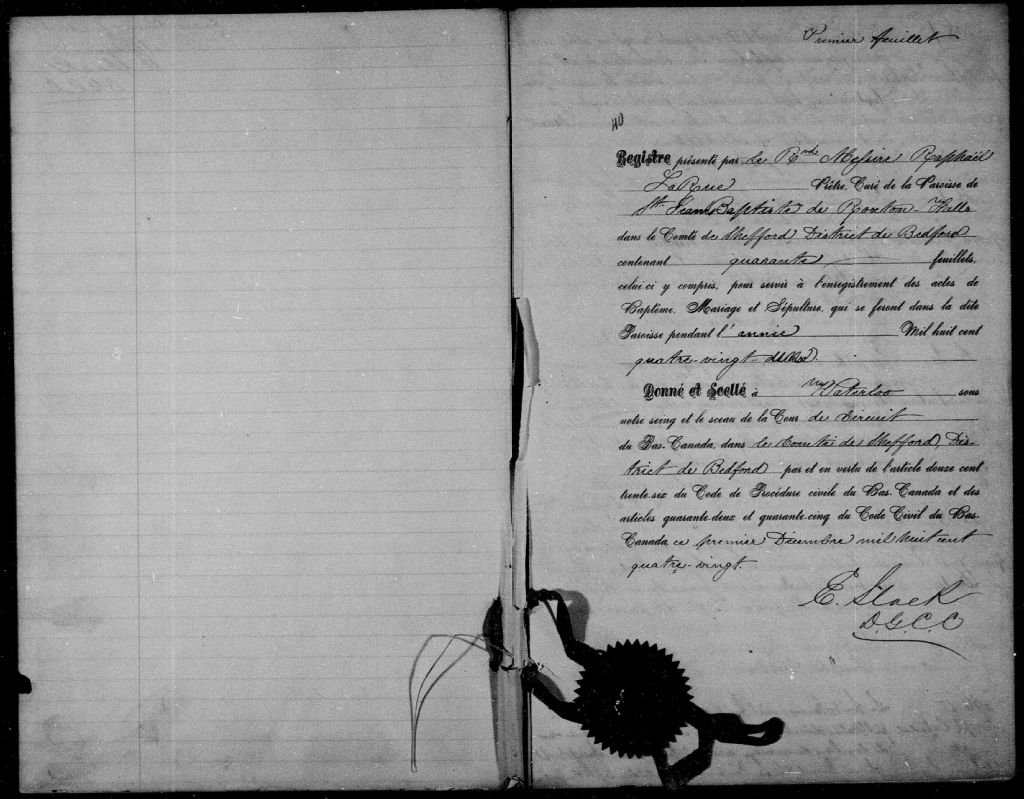 Premier feuillet
40
Registre présenté par le Rnd Messire Raphaël
LaRue Prêtre, Curé de la Paroisse de
St. Jean Baptiste de Roxton-Falls
dans le Comté de Shefford, District de Bedford
contenant quarante feuillets,
celui-ci y compris, pour servir à l'enregistrement des actes de
Baptême, Mariage et Sépulture, qui se feront dans la dite
Paroisse pendant l'année Mil huit cent
quatre-vingt-
Donné et Scellé à Waterloo sous
notre seing et le sceau de la Cour de Circuit
du Bas-Canada, dans le Comté de Shefford, Dis-
trict de Bedford par et en vertu de l'article douze cent
trente-six du Code de Procédure civile du Bas-Canada et des
articles quarante-deux et quarante-cinq du Code Civil du Bas-
Canada, ce premier Décembre mil huit cent
quatre-vingt.
E. Slack
D.G.C.C